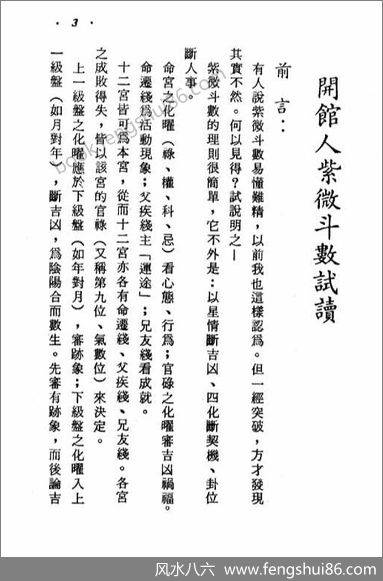 · 3 ·
開館人紫微斗數試讀
前言：
有人說紫微斗數易懂難精，以前我也這樣認爲。但一經突破，方才發現
其實不然。何以見得？試說明之—
紫微斗數的理則很簡單，它不外是：以星情斷吉凶、四化斷契機、卦位
斷人事。
命宮之化曜（祿、權、科、忌）看心態、行爲；官祿之化曜審吉凶禍福。
命遷綫爲活動現象；父疾綫主「運途」；兄友綫看成就。
十二宮皆可爲本宮，從而十二宮亦各有命遷綫、父疾綫、兄友綫。各宮
之成敗得失，皆以該宮的官祿（又稱第九位、氣數位）來決定。
上一級盤之化曜應於下級盤（如年對月），審跡象；下級盤之化曜入上
一級盤（如月對年），斷吉凶，爲陰陽合而數生。先審有跡象，而後論吉
book.fengshui86.com
风水八六 www.fengshui86.com